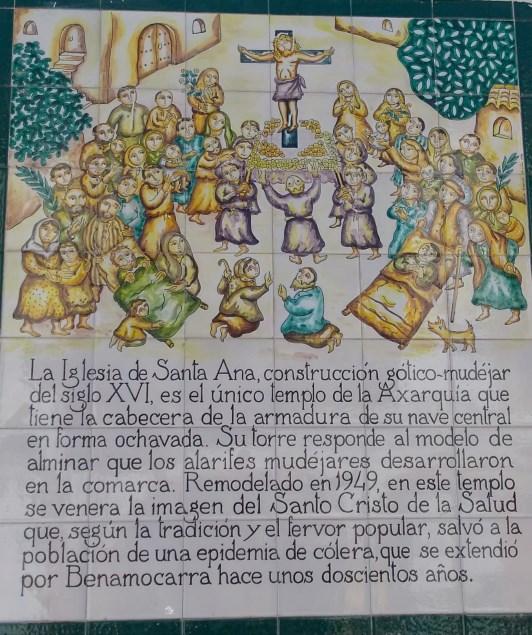 La Iglesia de Santa Ana, construcción gótico-mudéjar
del siglo XVI, es el único templo de la Axarquía que
tiene la cabecera de la armadura de su nave central
en forma ochavada. Su torre responde al modelo de
alminar que los alarifes mudéjares desarrollaron
en la comarca. Remodelado en 1949, en este templo
se venera la imagen del Santo Cristo de la Salud
que, según la tradición y el fervor popular, salvó a la
población de una epidemia de cólera, que se extendió
por Benamocarra hace unos doscientos años.